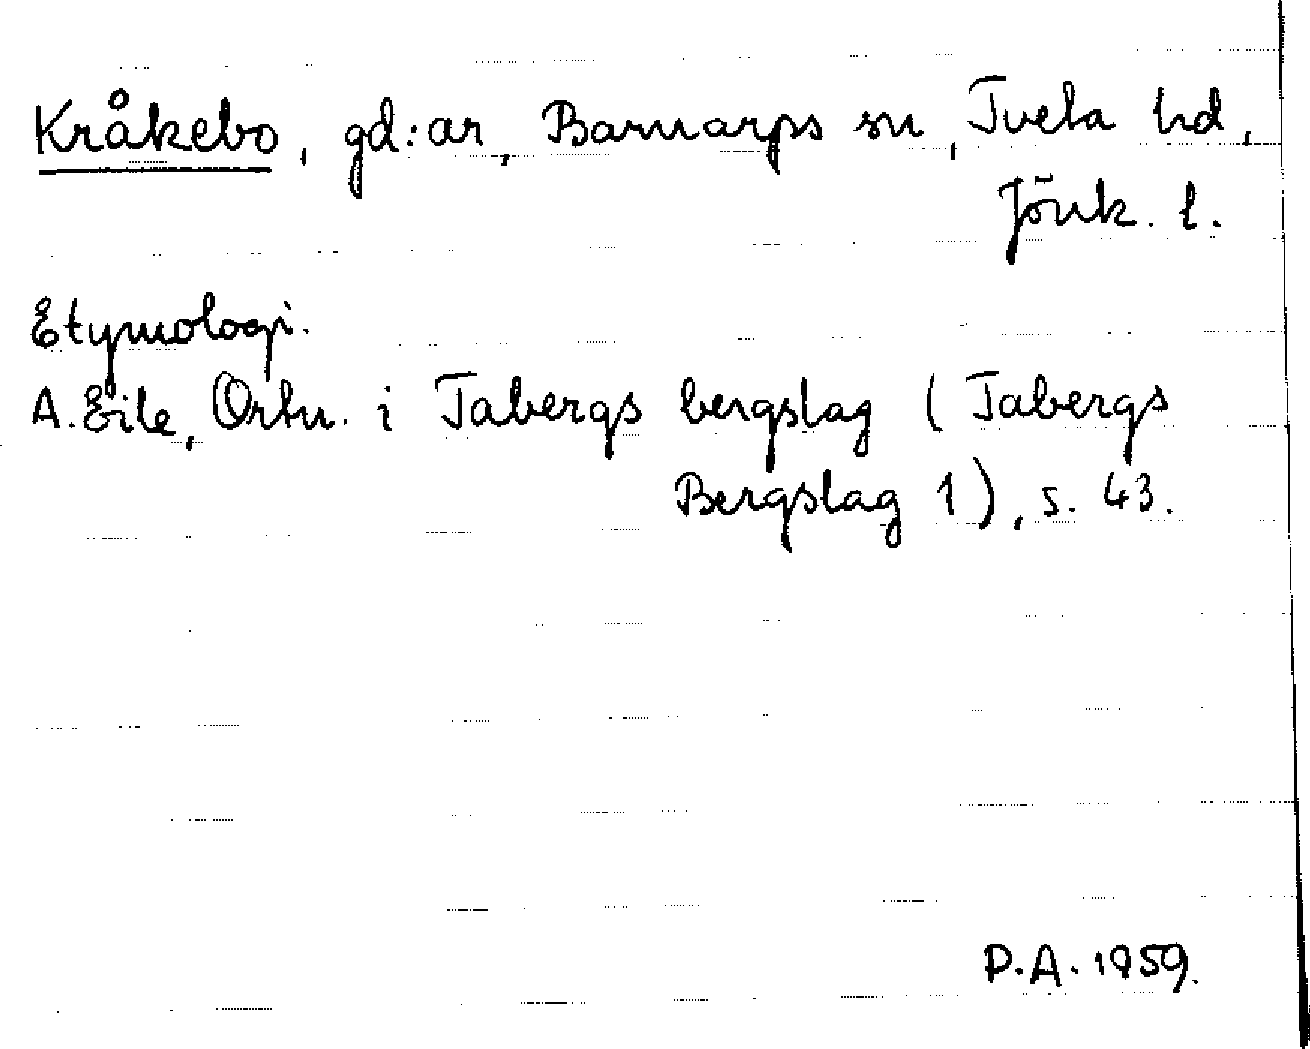 Kråkebo, gd:ar, Barnarps sn, Tveta hd,
Jönk. l.
Etymologi.
A. Eile, Ortn. i Tabergs bergslag (Tabergs
Bergslag 1), s. 43.
P.A. 1959.